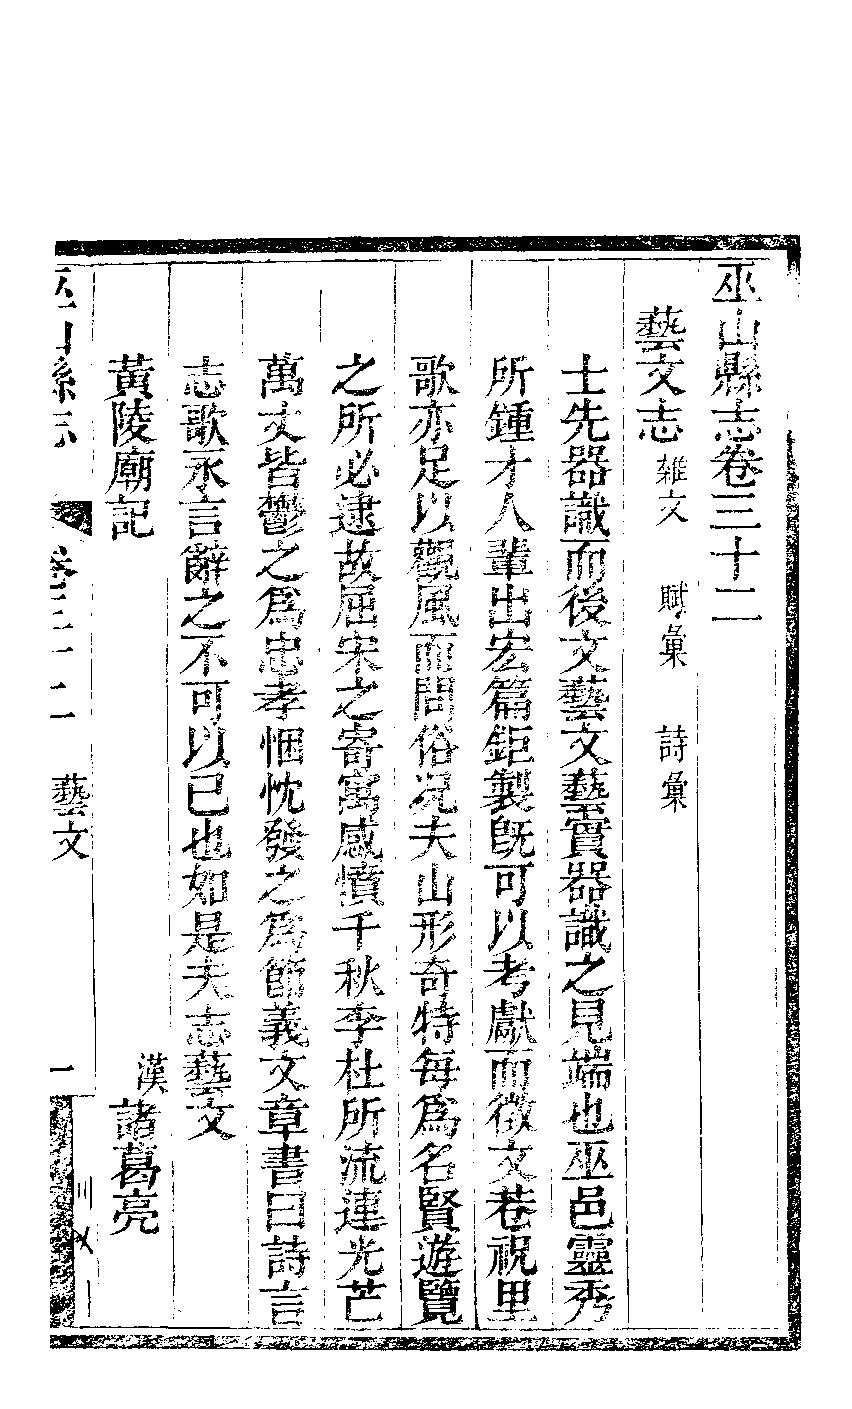 巫山縣志卷三十二
藝文志 雜文 賦彙 詩彙
士先器識而後文藝文藝實器識之見端也巫邑靈秀
所鍾才人輩出宏篇鉅製旣可以考獻而徵文巷祝里
歌亦足以觀風而問俗况夫山形奇特每爲名賢遊覽
之所必逮故屈宋之寄寓感憤千秋李杜所流連光芒
萬丈皆鬱之爲忠孝悃忱發之爲節義文章書曰詩言
志歌永言辭之不可以已也如是夫志藝文
黃陵廟記 漢諸葛亮
巫山縣志 卷三十二 藝文 一